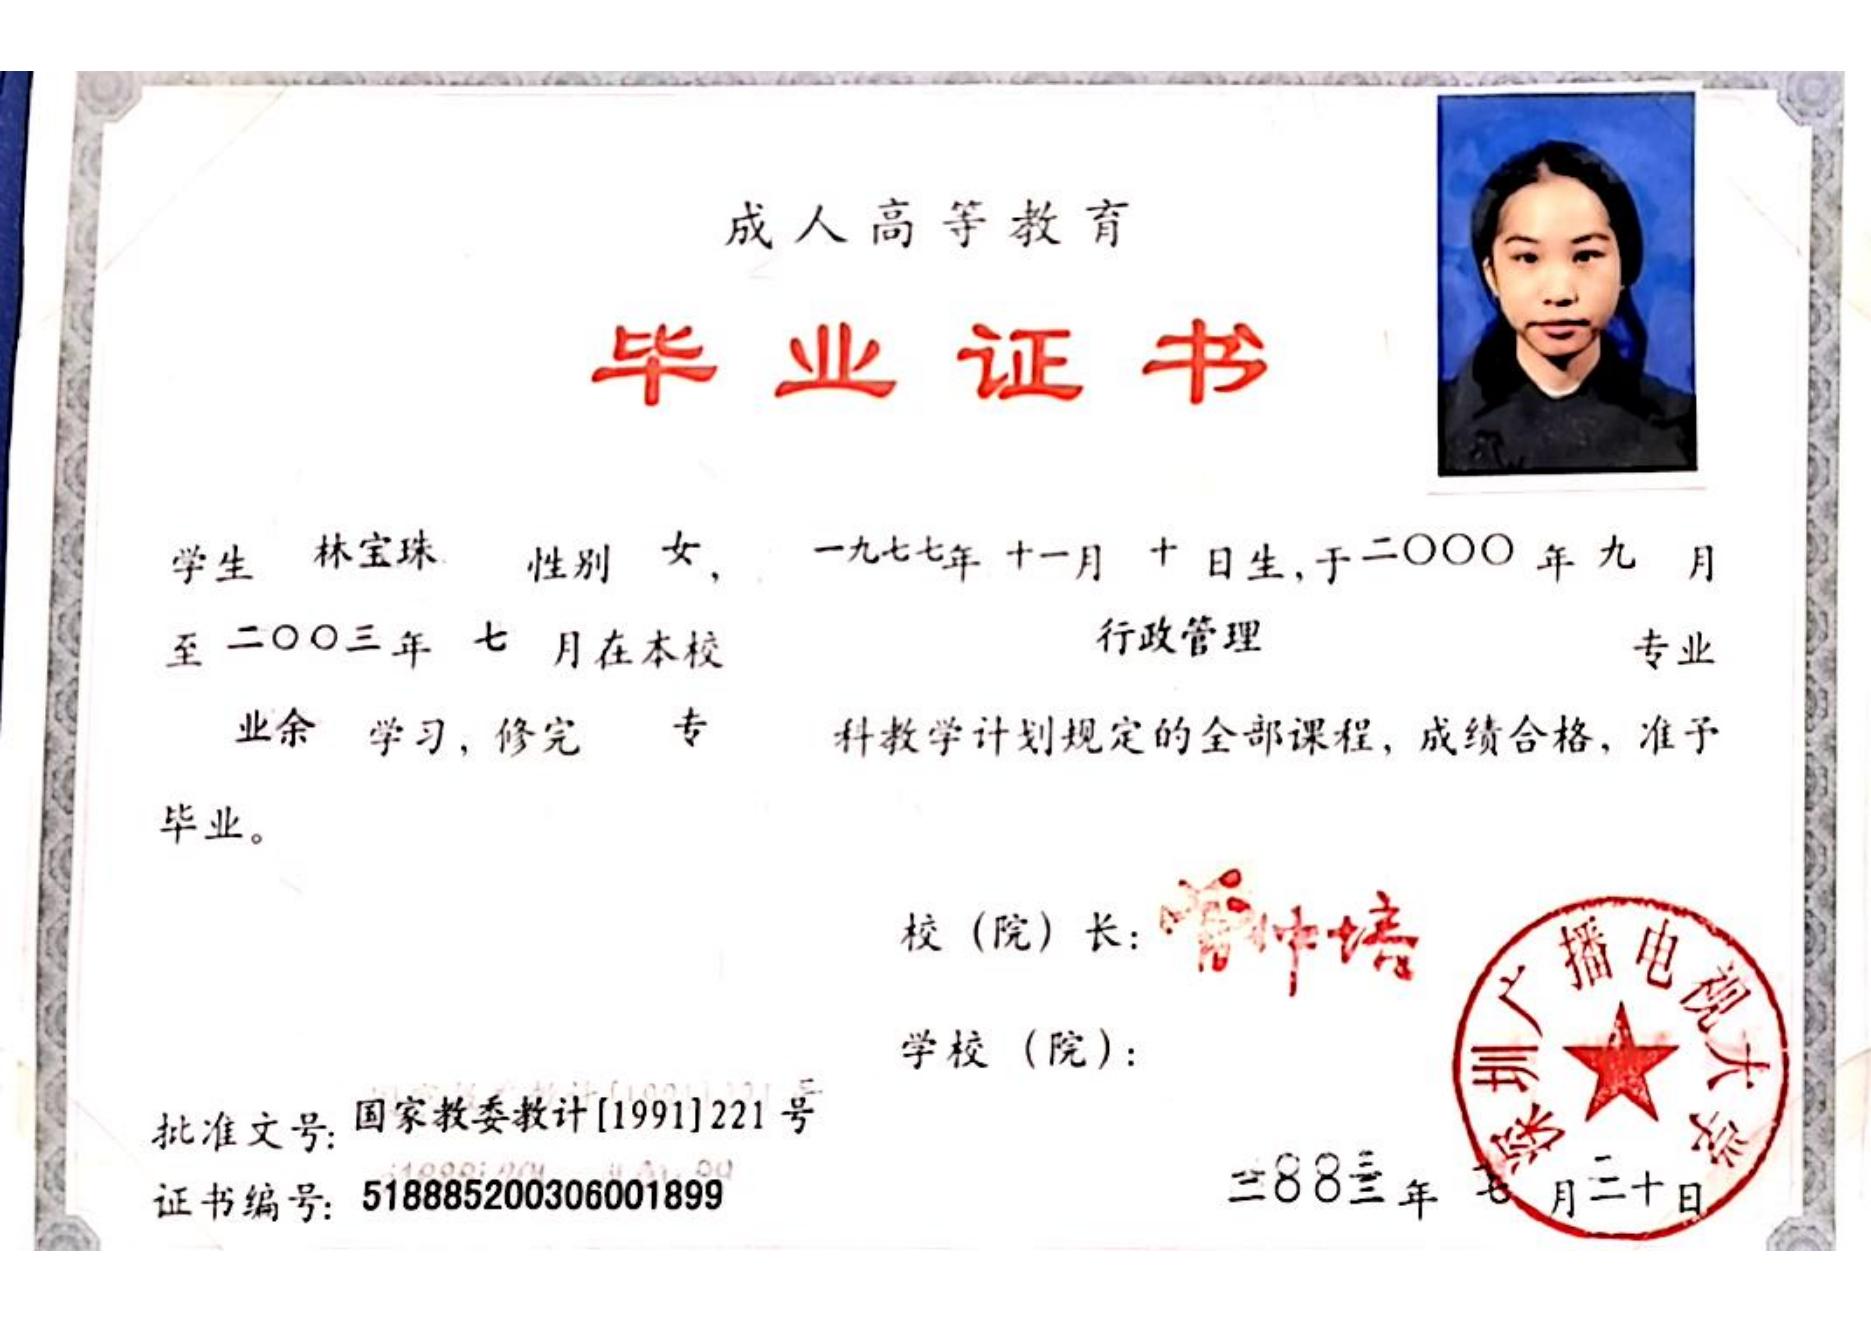 成人高等教育
毕业证书
学生 林宝珠 性别 女, 一九七七年 十一月 十 日生,于二〇〇〇 年 九 月
至 二〇〇三年 七 月在本校 行政管理 专业
业余 学习,修完 专 科教学计划规定的全部课程,成绩合格,准予
毕业。
校(院)长:
学校(院):
深圳广播电视大学
批准文号: 国家教委教计[1991]221号
证书编号: 518885200306001899
二〇〇三年 七 月二十日